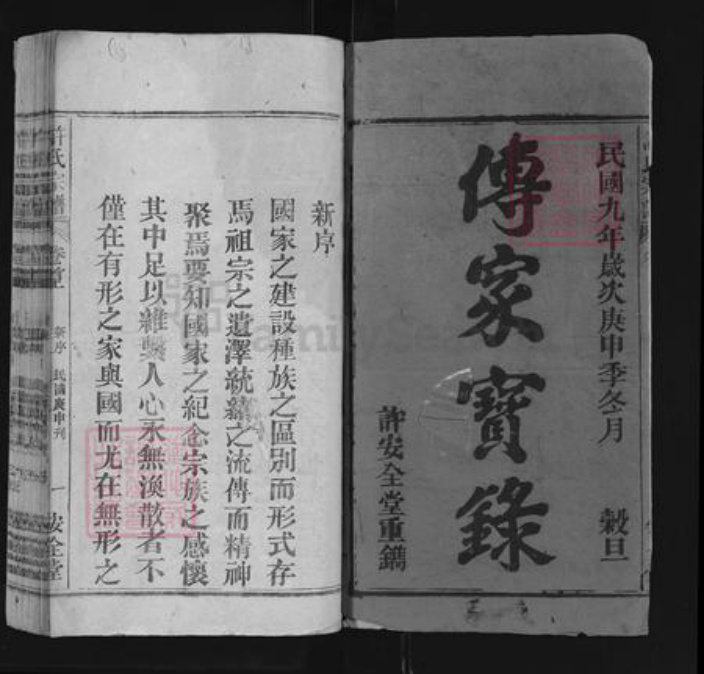 民國九年歲次庚申季冬月 穀旦
傳家寶錄
許安全堂重鐫
新序
國家之建設種族之區別而形式存
焉祖宗之遺澤統緒之流傳而精神
聚焉要知國家之紀念宗族之感懷
其中足以維繫人心永無渙散者不
僅在有形之家與國而尤在無形之
許氏宗譜 卷首 新序 民國庚申刊 一 安全堂
FamilySearch